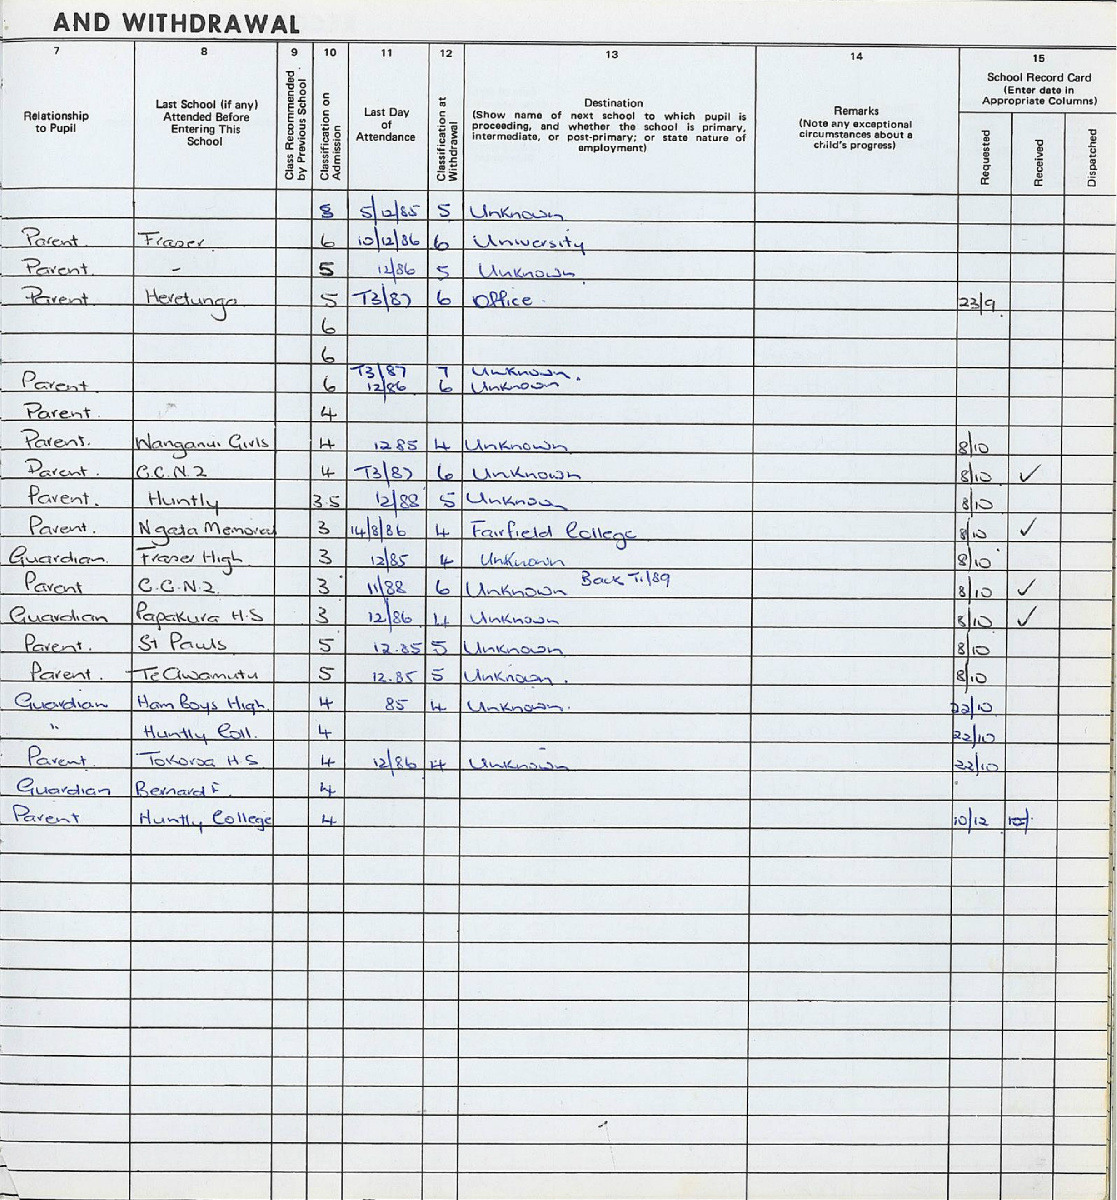 AND WITHDRAWAL
7 8 9 10 11 12 13 14 15
Relationship to Pupil
Last School (if any) Attended Before Entering This School
Class Recommended by Previous School
Classification on Admission
Last Day of Attendance
Classification at Withdrawal
Destination (Show name of next school to which pupil is proceeding, and whether the school is primary, intermediate, or post-primary; or state nature of employment)
Remarks (Note any exceptional circumstances about a child's progress)
School Record Card (Enter date in Appropriate Columns)
Requested Received Dispatched
5/12/85 5 Unknown
Parent. Fraser. 6 10/12/86 6 University
Parent. - 5 12/86 5 Unknown
Parent. Heretunga 5 T3/87 6 Office 23/9
6
6
T3/87 7 Unknown.
Parent 6 12/86 6 Unknown
Parent. 4
Parent. Wanganui Girls 4 12 85 4 Unknown 8/10
Parent. C.C.N.2 4 T3/87 6 Unknown 8/10 ✓
Parent. Huntly 3.5 12/88 5 Unknow 8/10
Parent. Ngata Memorial 3 14/8/86 4 Fairfield College 8/10 ✓
Guardian. Fraser High 3 12/85 4 Unknown 8/10
Parent C.C.N.2. 3 11/88 6 Unknown Back T1/89 8/10 ✓
Guardian Papakura H.S 3 12/86 4 Unknown 8/10 ✓
Parent. St Pauls 5 12.85 5 Unknown 8/10
Parent. Te Awamutu 5 12.85 5 Unknown. 8/10
Guardian Ham Boys High. 4 85 4 Unknown. 22/10
" Huntly Coll. 4 22/10
Parent. Tokoroa H S 4 12/86 4 Unknown 22/10
Guardian Bernard F. 4
Parent Huntly College 4 10/12